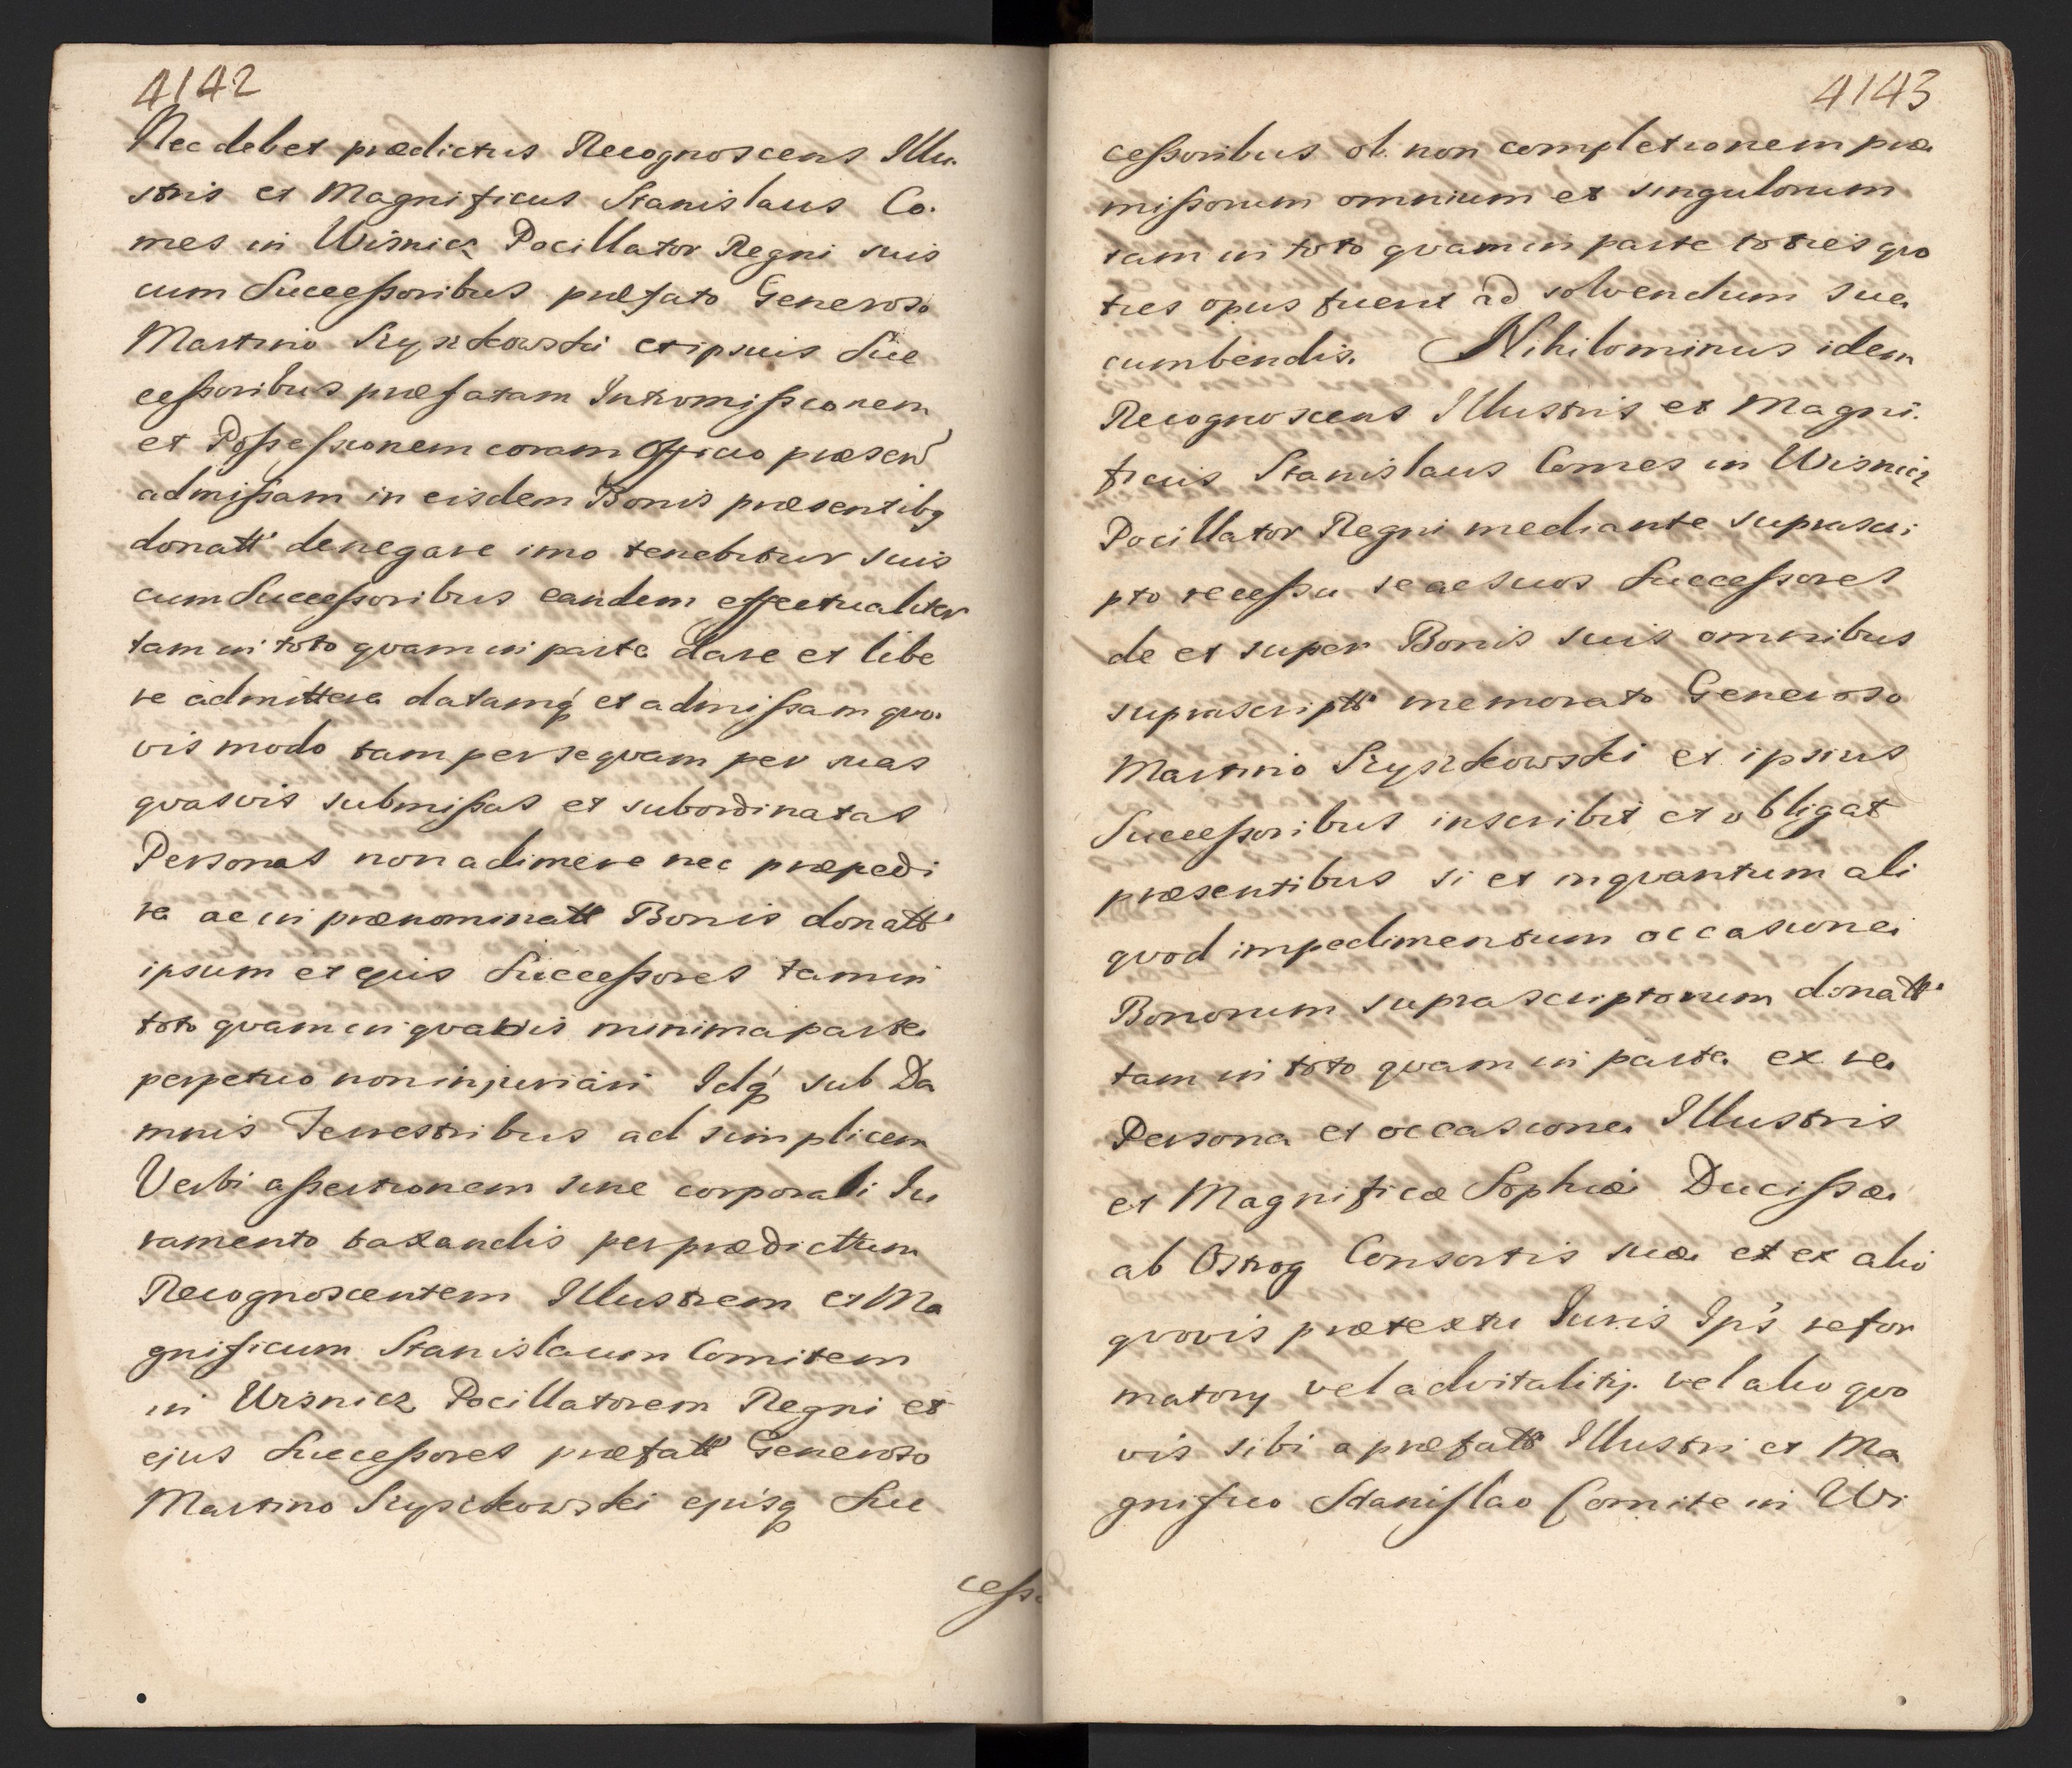 4142
Nec debet prædictus Recognoscens Illu-
stris et Magnificus Stanislaus Co-
mes in Wisnicz Pocillator Regni suis
cum Successoribus præfato Generoso
Martino et ipsius Suc
cessoribus præfatam Intromissionem
et Possessionem coram Officio præsen
admissam in eisdem Bonis præsentibq
donatt denegare imo tenebitur suis
cum Successoribus eandem effectualiter
tam in toto qvam in parte dare et libe
re admittere datamq et admissam qvo
vis modo tam per se qvam per suas
qvasvis submissas et subordinatas
Personas non adimere nec præpedi
re ac in prænominatt Bonis donatt
ipsum et ejus Successores tam in
toto qvam in qvavis minima parte
perpetuo non injuriari Idq sub Da
mnis Terrestribus ad simplicem
Verbi assertionem sine corporali Ju
ramento taxandis per prædictum
Recognoscentem Illustrem et Ma
gnificum Stanislaum Comitem
in Wisnicz Pocillatorem Regni et
ejus Successores præfatt Generoso
Martino ejusq Suc
cess
4143
cessoribus ob non completionem præ
missorum omnium et singulorum
tam in toto qvam in parte toties qvo
ties opus fuerit ad solvendum suc
cumbendis. Nihilominus idem
Recognoscens Illustris et Magni-
ficus Stanislaus Comes in Wisnicz
Pocillator Regni mediante suprascri
pto recessu se ac suos Successores
de et super Bonis suis omnibus
suprascriptt memorato Generoso
Martino et ipsius
Successoribus inscribit et obligat
præsentibus si et inqvantum ali
qvod impedimentum occasione
Bonorum suprascriptorum donatt
tam in toto qvam in parte ex re
Persona et occasione Illustris
et Magnificæ Sophiæ Ducissæ
ab Ostrog Consortis suæ et ex alio
qvovis prætextu Juris Ips refor
matory vel advitalitij vel alio qvo
vis sibi a præfatt Illustri et Ma
gnifico Stanislao Comite in Wi